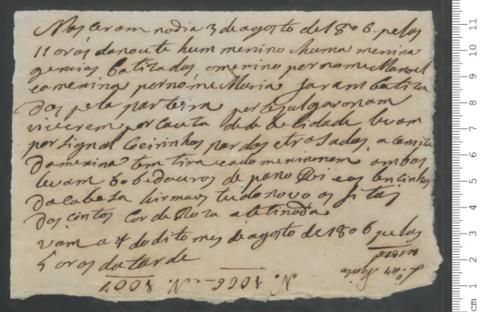 Nasceram nodia 3 de agosto de 1806. pelas
11 oras danoute hum menino ehuma menina
gemios, Batizados, omenino por nome Manoel
eamenina por nóme Maria Foram batiza
dos pela parteira por se julgar onam
viverem por Cauza de de belidade levam
por signal Coeirinhos par dos e trosados, a camiza
damenina tem tira eado menino nam ambos
levam de pano Rei eos lencinhos
da Cabeza hirmaos tudo novo os fitas
dos cintos Cor de Roza aletinada
vam a 4 do dito mes de agosto de 1806 pelas
5 oras da tarde
N. 1006 — N. 1007